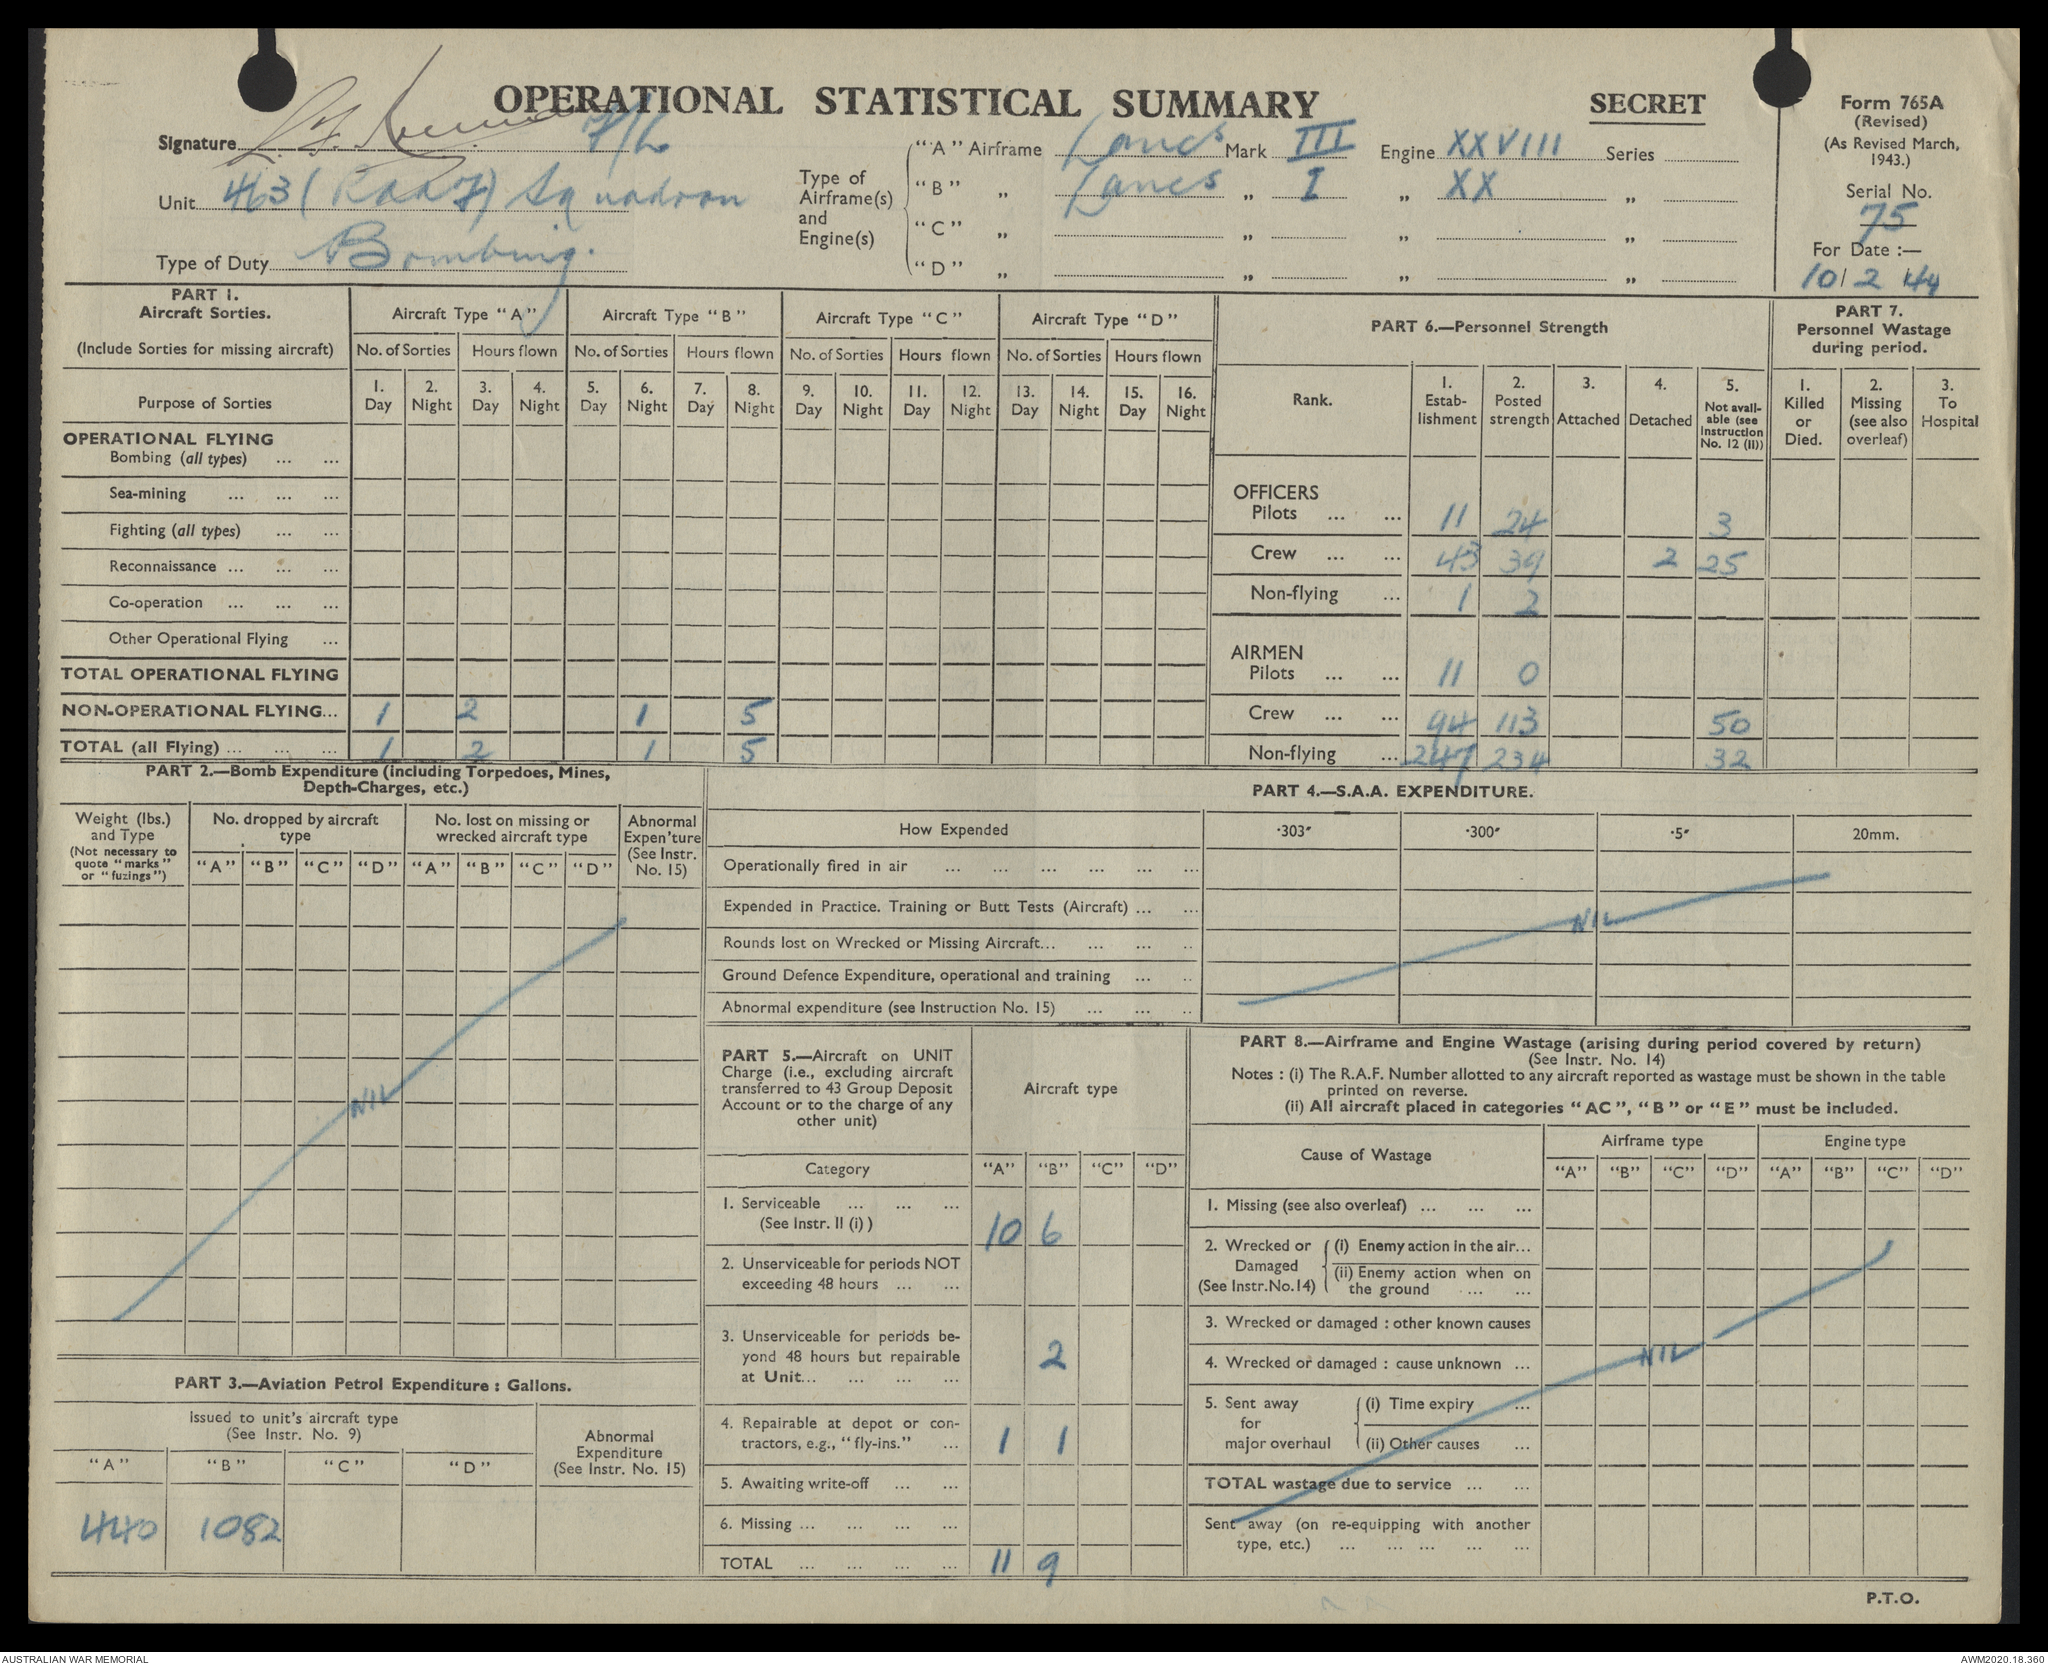 OPERATIONAL STATISTICAL SUMMARY
SECRET
Form 765A
(Revised)
(As Revised March,
1943.)
Serial No.
75
For Date :—
10/2/44
Signature F/L
Unit 463 (RAAF) Squadron
Type of Duty Bombing.
Type of
Airframe(s)
and
Engine(s)
"A" Airframe Lancs Mark III Engine XXVIII Series
"B" " Lancs " I " XX "
"C" " " " "
"D" " " " "
PART 1.
Aircraft Sorties.
(Include Sorties for missing aircraft)
Aircraft Type "A" Aircraft Type "B" Aircraft Type "C" Aircraft Type "D"
No. of Sorties Hours flown No. of Sorties Hours flown No. of Sorties Hours flown No. of Sorties Hours flown
Purpose of Sorties
1. Day 2. Night 3. Day 4. Night 5. Day 6. Night 7. Day 8. Night 9. Day 10. Night 11. Day 12. Night 13. Day 14. Night 15. Day 16. Night
OPERATIONAL FLYING
Bombing (all types) ... ...
Sea-mining ... ... ...
Fighting (all types) ... ...
Reconnaissance ... ... ...
Co-operation ... ... ...
Other Operational Flying ...
TOTAL OPERATIONAL FLYING
NON-OPERATIONAL FLYING... 1 2 1 5
TOTAL (all Flying) ... ... ... 1 2 1 5
PART 6.—Personnel Strength
Rank.
1. Estab-lishment 2. Posted strength 3. Attached 4. Detached 5. Not avail-able (see Instruction No. 12 (II))
OFFICERS
Pilots ... ... 11 24 3
Crew ... ... 43 39 2 25
Non-flying ... 1 2
AIRMEN
Pilots ... ... 11 0
Crew ... ... 94 113 50
Non-flying ... 247 234 32
PART 7.
Personnel Wastage
during period.
1. Killed or Died. 2. Missing (see also overleaf) 3. To Hospital
PART 2.—Bomb Expenditure (including Torpedoes, Mines,
Depth-Charges, etc.)
Weight (lbs.)
and Type
(Not necessary to
quote "marks"
or "fuzings")
No. dropped by aircraft
type
No. lost on missing or
wrecked aircraft type
Abnormal
Expen'ture
(See Instr.
No. 15)
"A" "B" "C" "D" "A" "B" "C" "D"
NIL
PART 3.—Aviation Petrol Expenditure : Gallons.
Issued to unit's aircraft type
(See Instr. No. 9)
Abnormal
Expenditure
(See Instr. No. 15)
"A" "B" "C" "D"
440 1082
PART 4.—S.A.A. EXPENDITURE.
How Expended ·303" ·300" ·5" 20mm.
Operationally fired in air ... ... ... ... ... ...
Expended in Practice. Training or Butt Tests (Aircraft) ... ...
NIL
Rounds lost on Wrecked or Missing Aircraft... ... ... ..
Ground Defence Expenditure, operational and training ... ..
Abnormal expenditure (see Instruction No. 15) ... ... ..
PART 5.—Aircraft on UNIT
Charge (i.e., excluding aircraft
transferred to 43 Group Deposit
Account or to the charge of any
other unit)
Aircraft type
Category "A" "B" "C" "D"
1. Serviceable ... ... ...
(See Instr. II (i) ) 10 6
2. Unserviceable for periods NOT
exceeding 48 hours ... ...
3. Unserviceable for periods be-
yond 48 hours but repairable
at Unit... ... ... ... 2
4. Repairable at depot or con-
tractors, e.g., "fly-ins." ... 1 1
5. Awaiting write-off ... ...
6. Missing ... ... ... ...
TOTAL ... ... ... ... 11 9
PART 8.—Airframe and Engine Wastage (arising during period covered by return)
(See Instr. No. 14)
Notes : (i) The R.A.F. Number allotted to any aircraft reported as wastage must be shown in the table
printed on reverse.
(ii) All aircraft placed in categories "AC", "B" or "E" must be included.
Cause of Wastage Airframe type Engine type
"A" "B" "C" "D" "A" "B" "C" "D"
1. Missing (see also overleaf) ... ... ...
2. Wrecked or Damaged (See Instr.No.14)
(i) Enemy action in the air...
(ii) Enemy action when on
the ground ... ...
3. Wrecked or damaged : other known causes
4. Wrecked or damaged : cause unknown ... NIL
5. Sent away for major overhaul
(i) Time expiry ...
(ii) Other causes ...
TOTAL wastage due to service ... ...
Sent away (on re-equipping with another
type, etc.) ... ... ... ... ...
P.T.O.
AUSTRALIAN WAR MEMORIAL
AWM2020.18.360